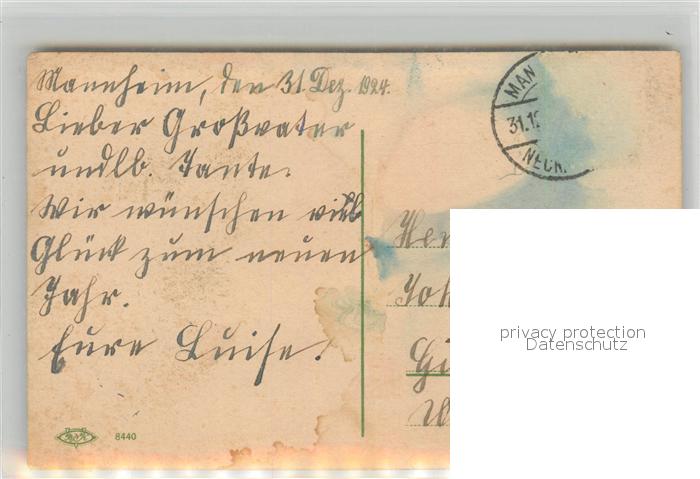 Mannheim, den 31. Dez. 1924.
Lieber Großvater
undlb. Tante.
Wir wünschen viel
Glück zum neuen
Jahr.
Eure Luise.
8440
MAN
31.12
NECK.
privacy protection
Datenschutz